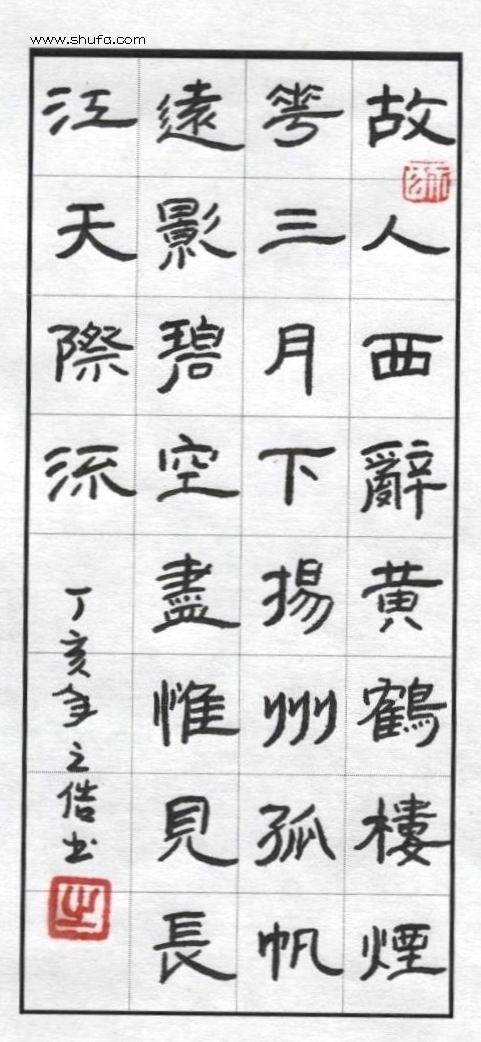 www.shufa.com
故人西辭黄鶴樓煙
花三月下揚州孤帆
遠影碧空盡惟見長
江天際流
丁亥年之俈书